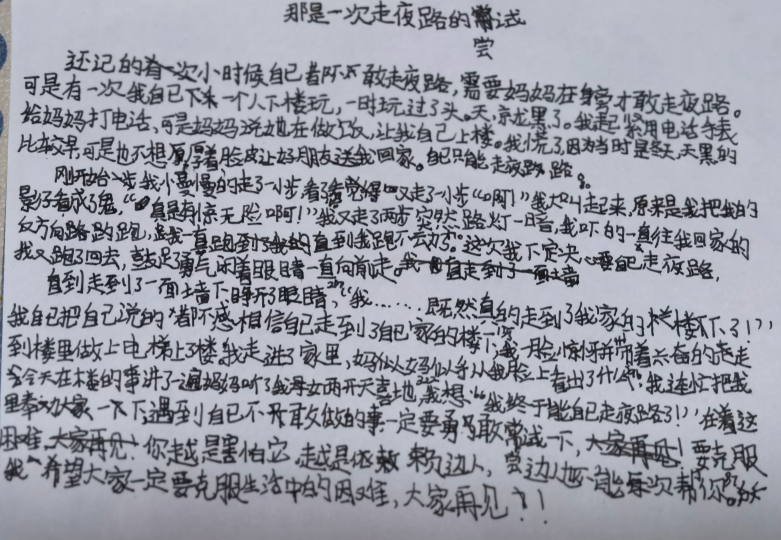 那是一次走夜路的尝试
还记的有一次小时候自己都不敢走夜路,需要妈妈在身旁才敢走夜路。
可是有一次我自己下来一个人下楼玩,一时玩过了头。天,京龙黑了。我赶紧用电话手表
给妈妈打电话,可是妈妈说她在做饭,让我自己上楼。我慌了因为当时是冬天,天黑的
比较早,可是也不想厚着脸皮让好朋友送我回家。自己只能走夜路。
刚开始一步我小慢慢的走了一小步,看了看觉得又走了一小步“啊!”我大叫起来,原来是我把我的
影子看成了鬼,“真是有惊无险啊!”我又走了两步突然路灯一暗,我吓的一直往我回家的
反方向路的跑,直到我跑不动了。这次我下定决心要自己走夜路,
我又跑了回去,鼓足了勇气闭着眼睛一直向前走。我一直走到了一面墙
直到走到了一面墙下睁开了眼睛,“我……既然真的走到了我家的楼下了!”
我自己把自己说的都不感相信自己走到了自己家的楼下,我一脸惊讶并带着兴奋的走
到楼里做上电梯上了楼。我走进了家里,妈妈似乎从我脸上看出了什么,我连忙把我
今天在楼的事讲了一遍妈妈听了我母女两开天喜地,我想:“我终于能自己走夜路了!”在着这
里奉劝大家一下下遇到自己不敢做的事一定要勇敢尝试一下,大家再见!要克服
困难,大家再见!你越是害怕它,越是依赖边人,边人也不能每次帮你。
我希望大家一定要克服生活中的困难,大家再见!!